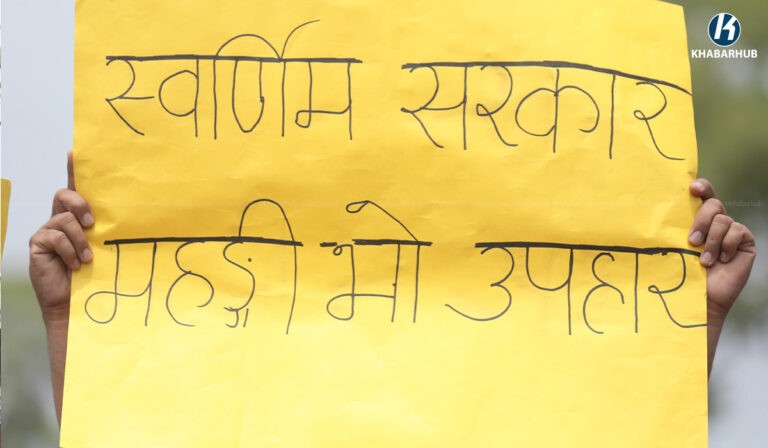 KHABARHUB
स्वर्णिम सरकार
©khabarhub
महङ्गी भो उपहार